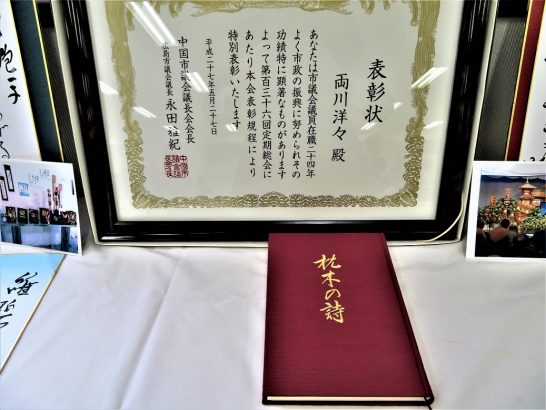 表彰状
両川洋々殿
あなたは市議会議員在職二十四年
よく市政の振興に努められその
功績特に顕著なものがあります
よって第百三十六回定期総会に
あたり本会表彰規程により
特別表彰いたします
平成二十七年五月二十七日
中国市議会議長会会長
広島市議会議長 永田雅紀
枕木の詩